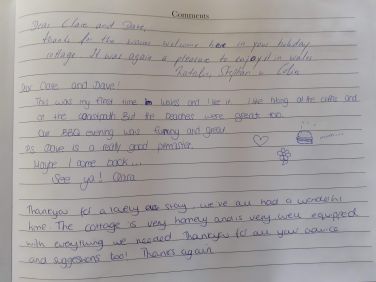 Comments
Dear Clare and Dave,
thanks for the warm welcome here in your holiday
cottage. It was again a pleasure to enjoy it in wales
Stephan Colin
Dear Clare and Dave!
This was my first time in Wales and I like it. I like hiking at the coffie and
at the coastpath. But the beaches were great too.
Our BBQ evening was funny and great.
PS. Dave is a really good
Maybe I come back...
See ya! Clara
Thankyou for a lovely stay, we've all had a wonderful
time. The cottage is very homely and is very well equipped
with everything we needed. Thankyou for all your advice
and suggestions too! Thanks again